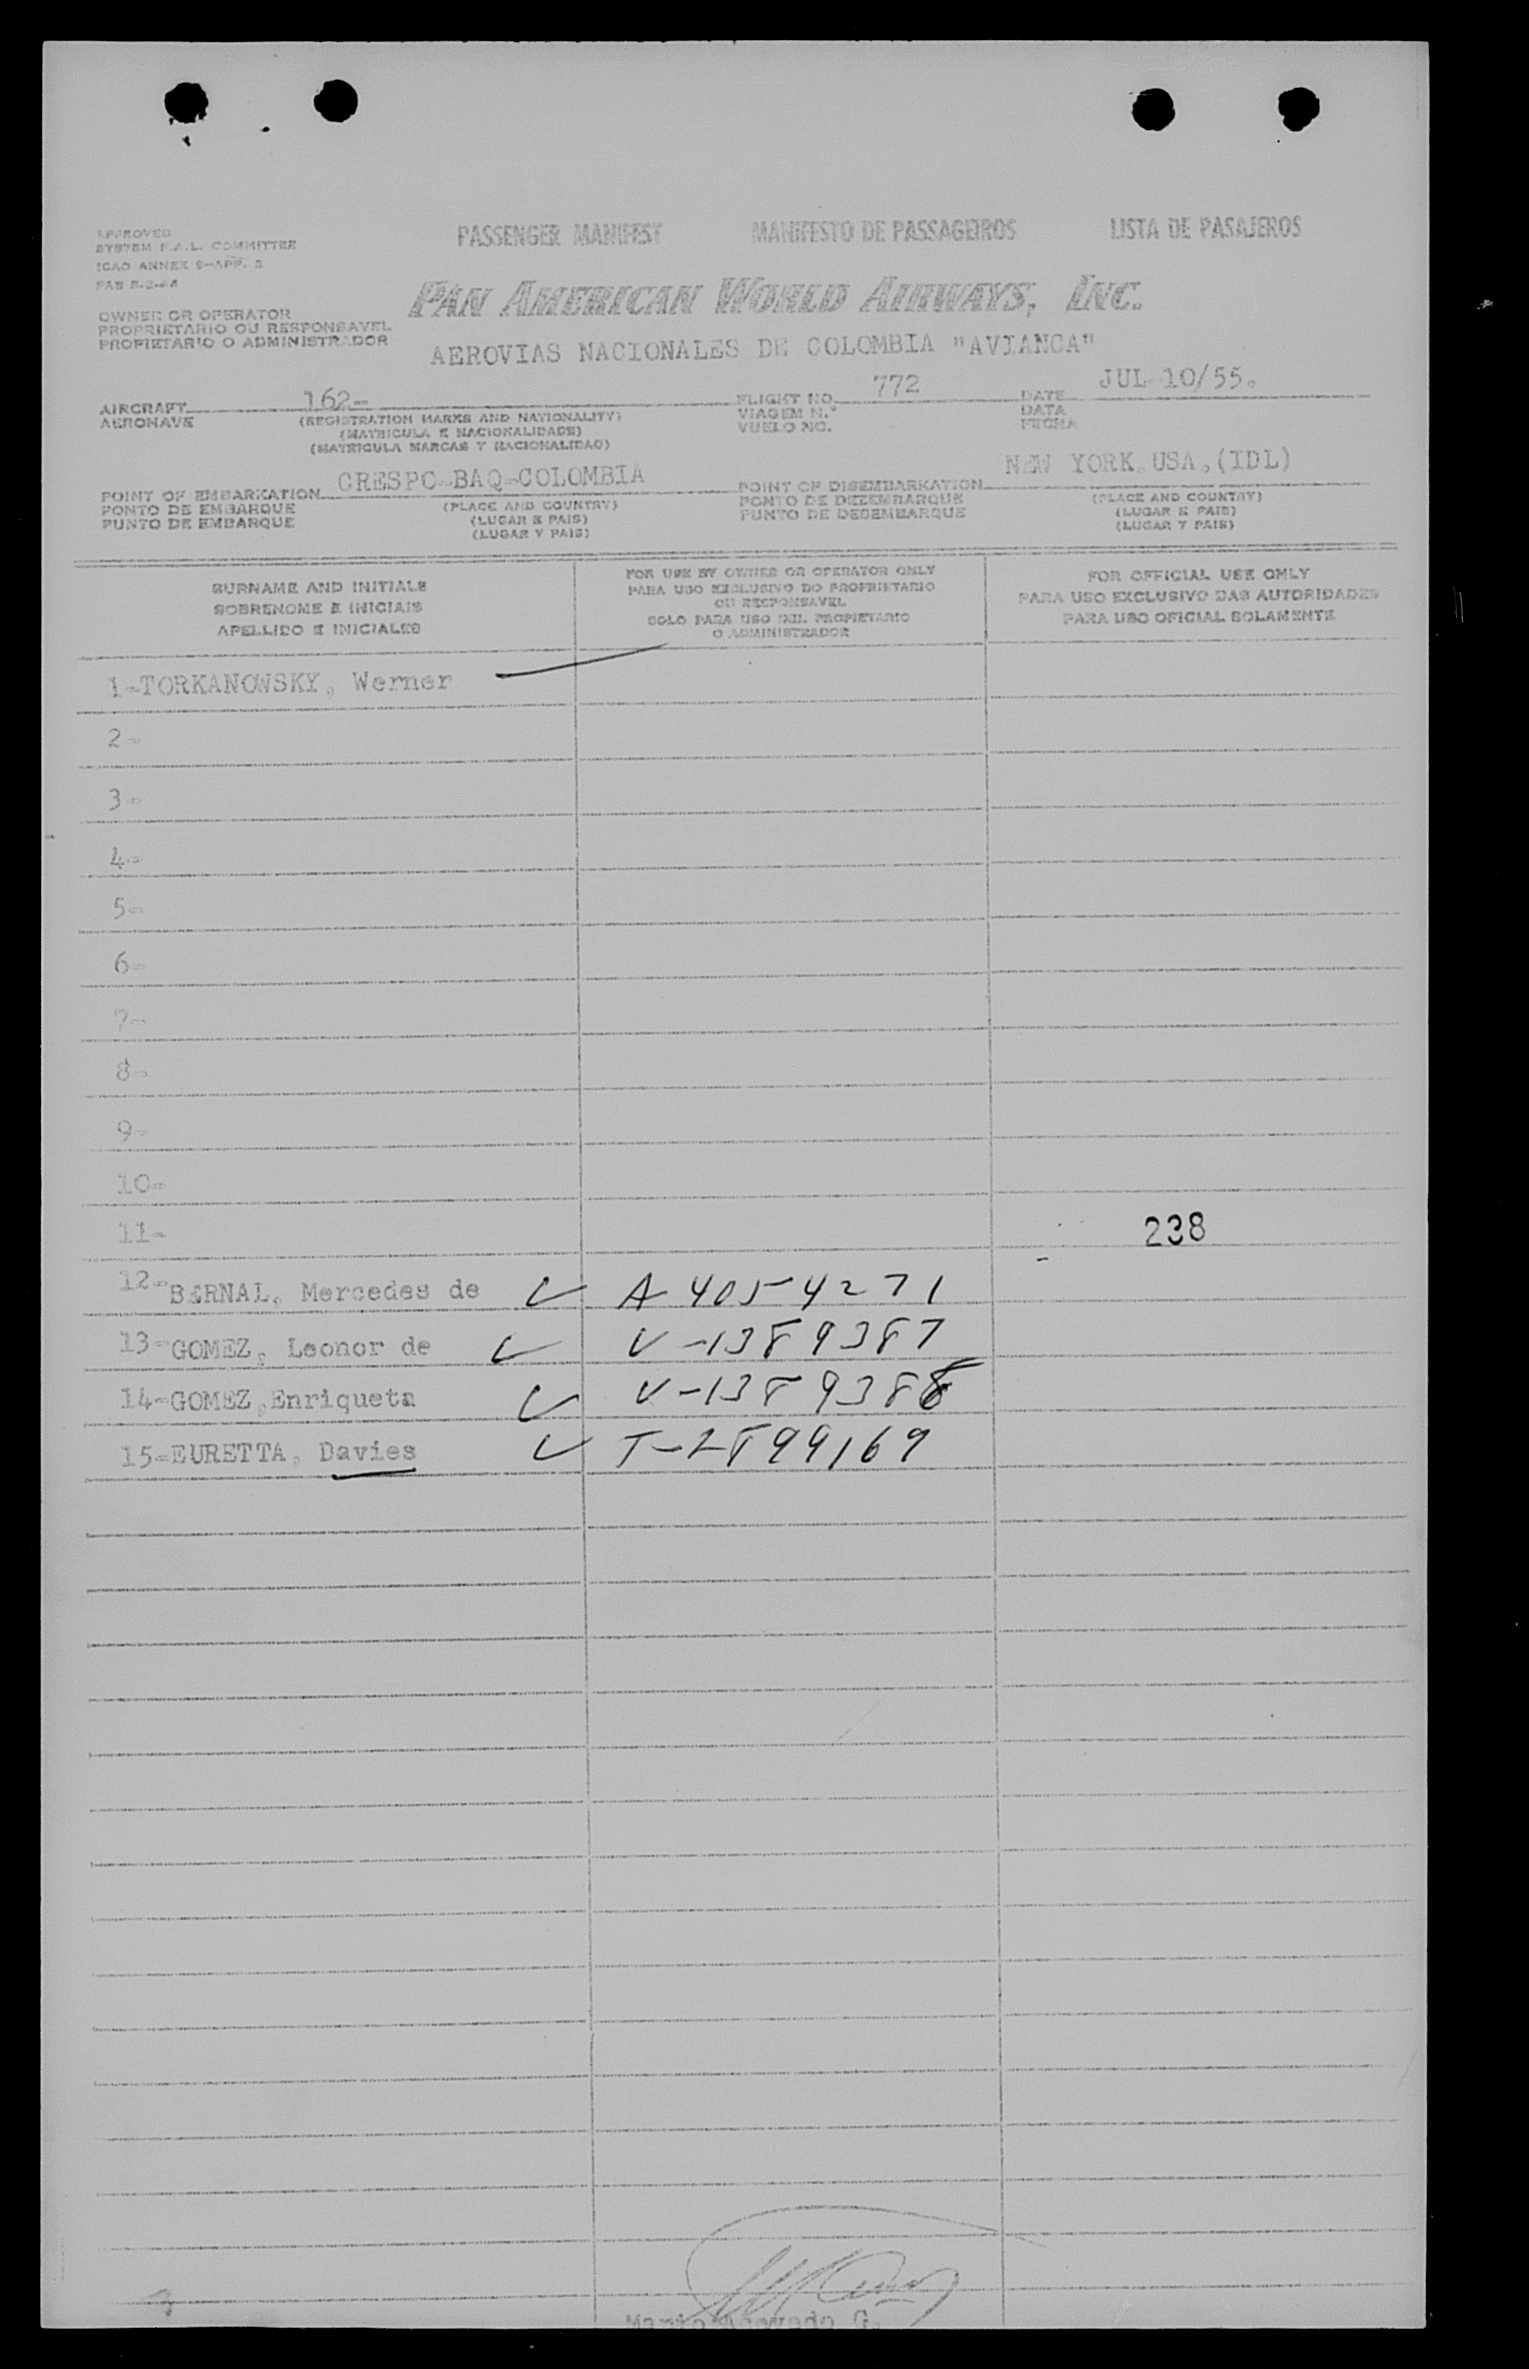 PASSENGER MANIFEST MANIFESTO DE PASSAGEIROS LISTA DE PASAJEROS
APPROVED
SYSTEM F.A.L. COMMITTEE
ICAO ANNEX 9-APP. 3
PAN AMERICAN WORLD AIRWAYS, INC.
OWNER OR OPERATOR
PROPRIETARIO OU RESPONSAVEL
PROPIETARIO O ADMINISTRADOR
AEROVIAS NACIONALES DE COLOMBIA "AVIANCA"
AIRCRAFT 162- FLIGHT NO. 772 DATE JUL 10/55.
AERONAVE (REGISTRATION MARKS AND NATIONALITY) VIAGEM N.º DATA
(MATRICULA E NACIONALIDADE) VUELO NO. FECHA
(MATRICULA MARCAS Y NACIONALIDAD)
POINT OF EMBARKATION CRESPO-BAQ-COLOMBIA POINT OF DISEMBARKATION NEW YORK, USA, (IDL)
PONTO DE EMBARQUE (PLACE AND COUNTRY) PONTO DE DESEMBARQUE (PLACE AND COUNTRY)
PUNTO DE EMBARQUE (LUGAR E PAIS) PUNTO DE DESEMBARQUE (LUGAR E PAIS)
(LUGAR Y PAIS) (LUGAR Y PAIS)
SURNAME AND INITIALS
SOBRENOME E INICIAIS
APELLIDO E INICIALES
FOR USE BY OWNER OR OPERATOR ONLY
PARA USO EXCLUSIVO DO PROPRIETARIO
OU RESPONSAVEL
SOLO PARA USO DEL PROPIETARIO
O ADMINISTRADOR
FOR OFFICIAL USE ONLY
PARA USO EXCLUSIVO DAS AUTORIDADES
PARA USO OFICIAL SOLAMENTE
1-TORKANOWSKY, Werner
2-
3-
4-
5-
6-
7-
8-
9-
10-
11- 238
12-BERNAL, Mercedes de A 4054271
13-GOMEZ, Leonor de V-1389387
14-GOMEZ, Enriqueta V-1389388
15-EURETTA, Davies T-2899169
3